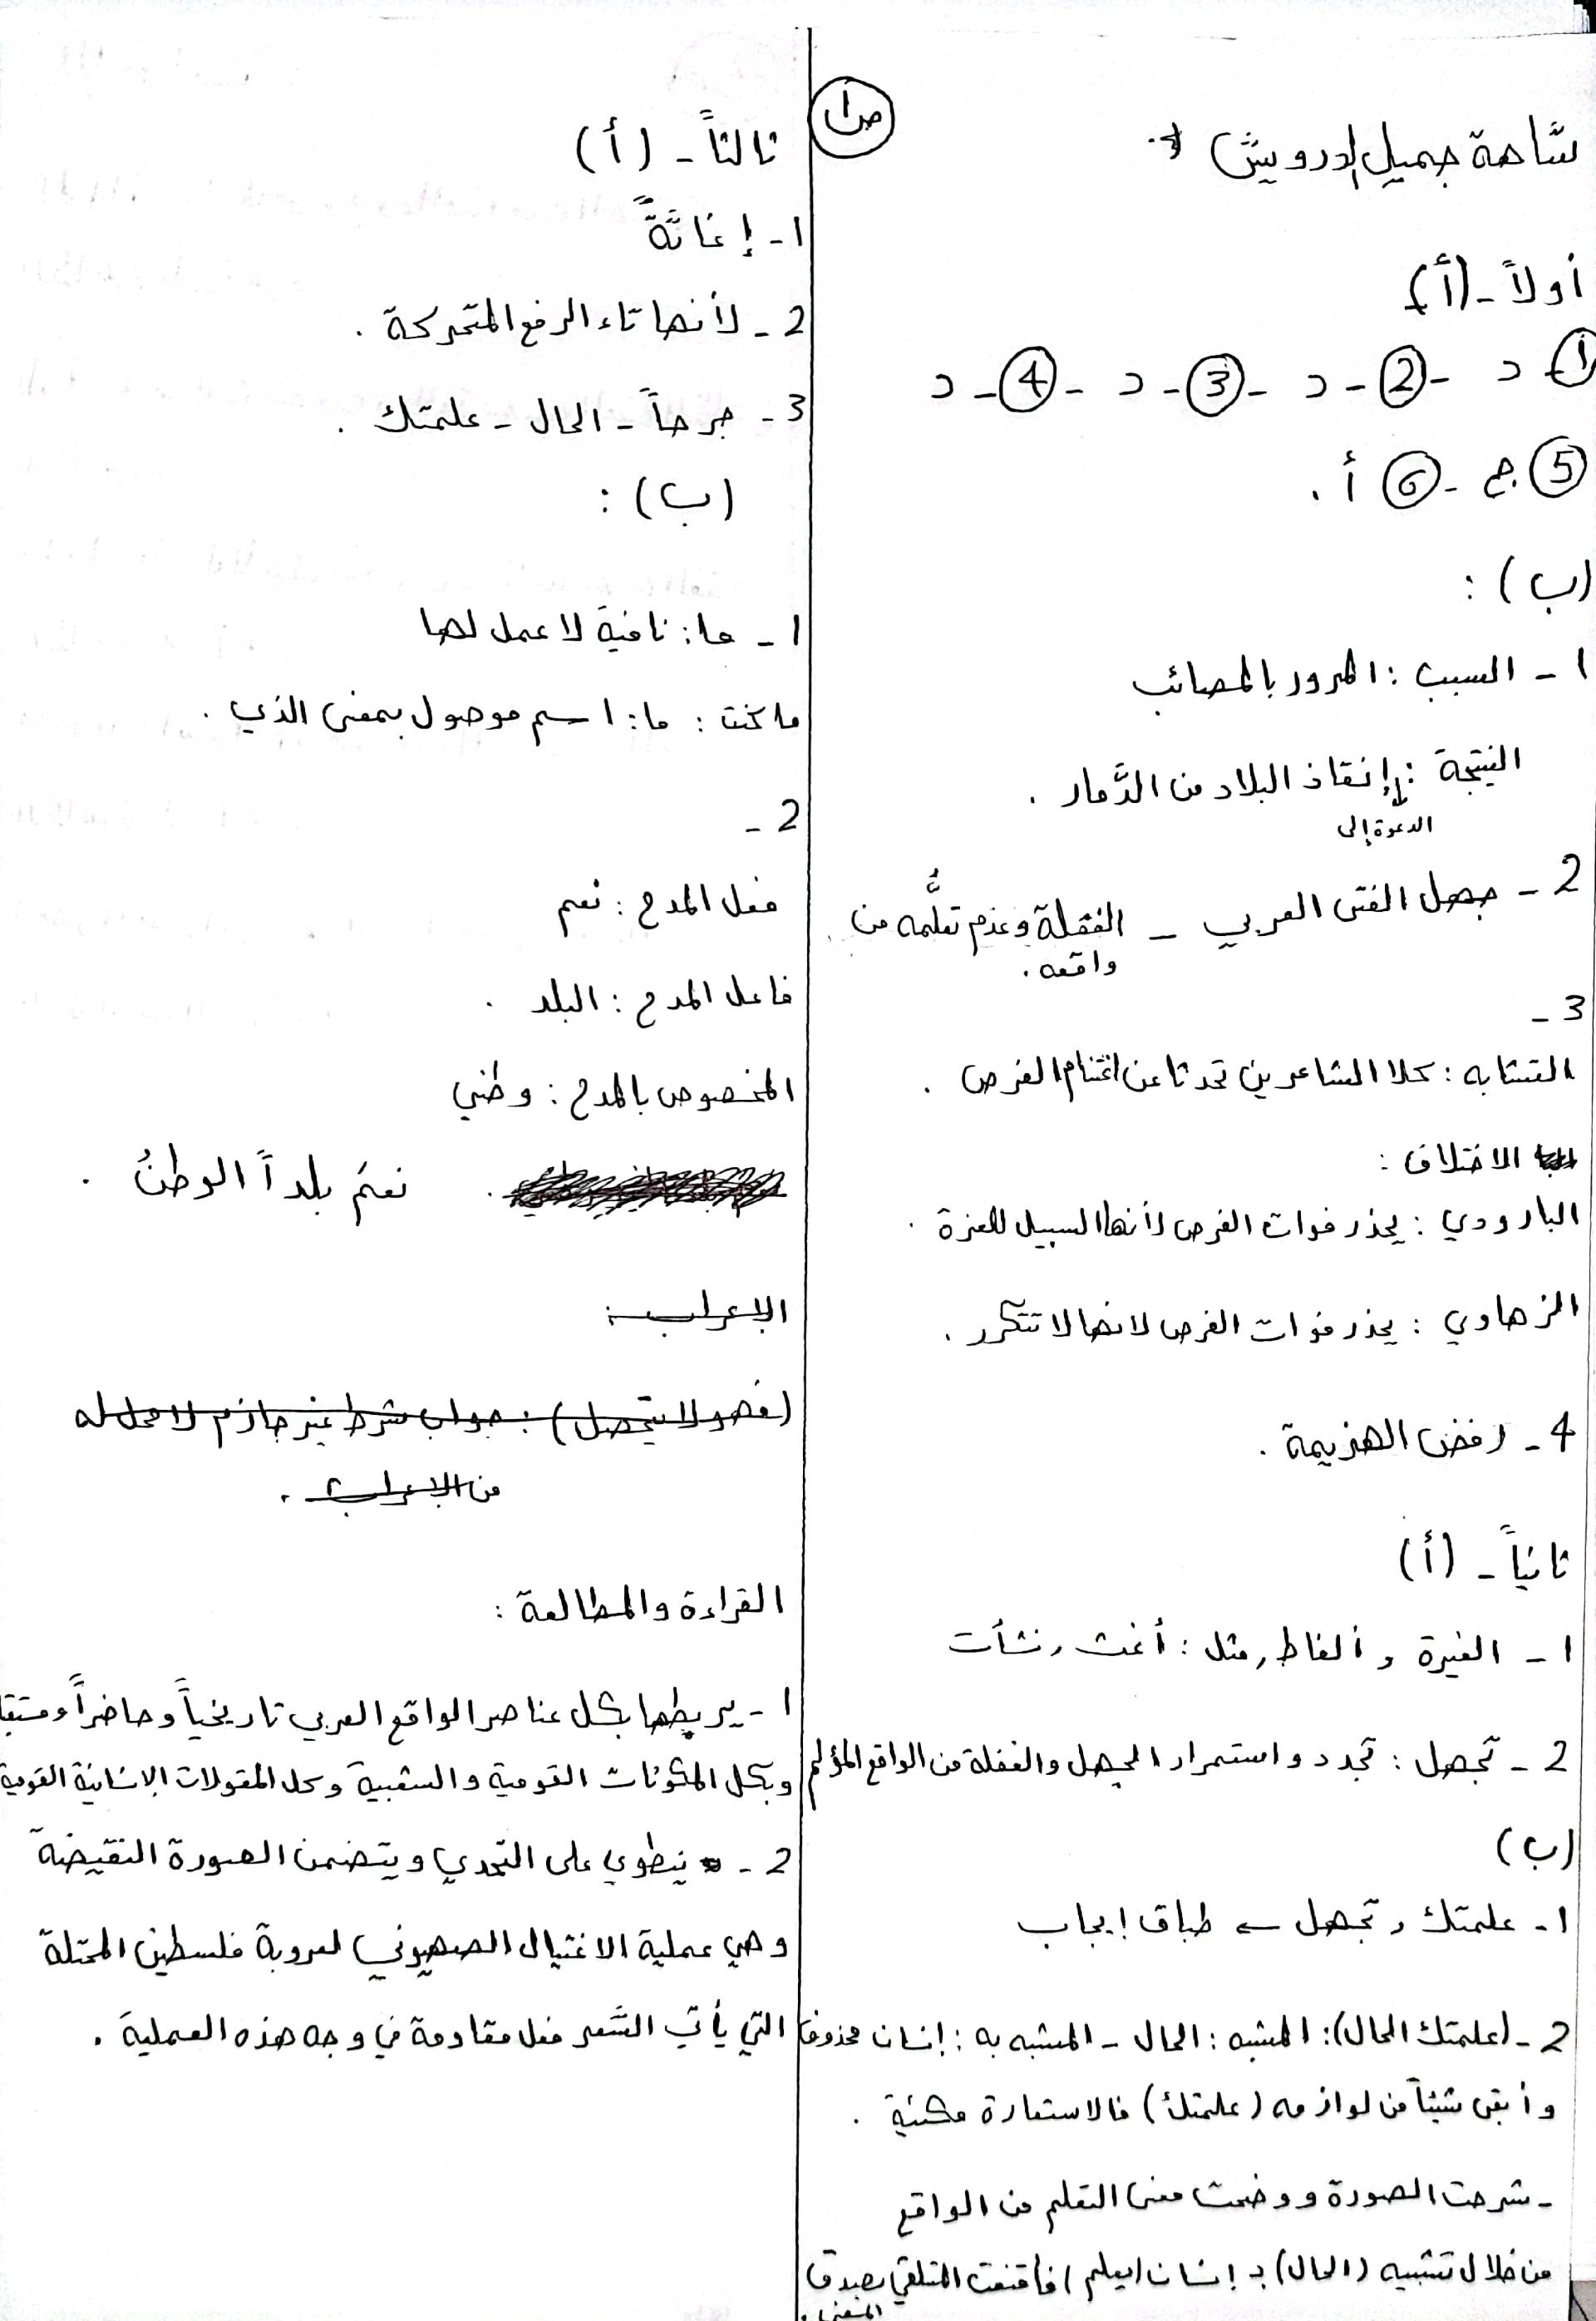 شامة جميل درويش
ص1
أولاً - (أ)
1 د - 2 - د - 3 - د - 4 - د
5 ج - 6 أ .
(ب) :
1 - السبب : المرور بالمصائب
النتيجة : إنقاذ البلاد من الدَّمار .
الدعوة إلى
2 - جهل الفتى العربي - الغفلة وعدم تعلُّمه من
واقعه .
3 -
التشابه : كلا الشاعرين تحدثا عن اغتنام الفرص .
الاختلاف :
البارودي : يحذر فوات الفرص لأنها السبيل للعزة .
الزهاوي : يحذر فوات الفرص لانها لا تتكرر .
4 - رفض الهزيمة .
ثانياً - (أ)
1 - الغيرة و ألفاظ , مثل : أغث , نشأت
2 - تجهل : تجدد و استمرار الجهل والغفلة من الواقع المؤلم
(ب)
1 - علمتك , تجهل ← طباق إيجاب
2 - (علمتك الحال) : المشبه : الحال - المشبه به : إنسان محذوف
و أبقى شيئاً من لوازمه (علمتك) فالاستعارة مكنية .
- شرحت الصورة و وضحت معنى التعلم من الواقع
من خلال تشبيه (الحال) بـ إنسان (يعلم) فأقنعت المتلقي بصدق
المعنى .
ثالثاً - (أ)
1 - إغاثةً
2 - لأنها تاء الرفع المتحركة .
3 - جرحاً - الحال - علمتك .
(ب) :
1 - ما : نافية لا عمل لها
ما كنت : ما : اسم موصول بمعنى الذي .
2 -
فعل المدح : نعم
فاعل المدح : البلد .
المخصوص بالمدح : وطني
نعمَ بلداً الوطنُ .
الإعراب :
(فهو لا يتحصل) : جواب شرط غير جازم لا محل له
من الإعراب .
القراءة والمطالعة :
1 - يربطها بكل عناصر الواقع العربي تاريخياً و حاضراً و
وبكل المكونات القومية و الشعبية وكل المقولات الإنسانية القومية
2 - ينطوي على التحدي و يتضمن الصورة النقيضة
و هي عملية الاغتيال الصهيوني لعروبة فلسطين المحتلة
التي يأتي الشعر فعل مقاومة في وجه هذه العملية .